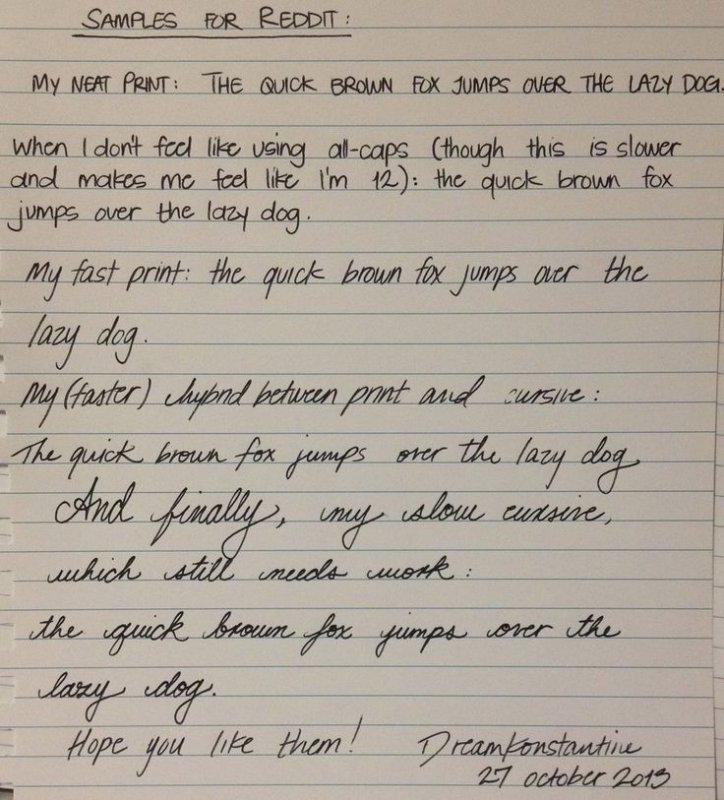 SAMPLES FOR REDDIT:
MY NEAT PRINT: THE QUICK BROWN FOX JUMPS OVER THE LAZY DOG.
When I don't feel like using all-caps (though this is slower
and makes me feel like I'm 12): the quick brown fox
jumps over the lazy dog.
My fast print: the quick brown fox jumps over the
lazy dog.
My (faster) hybrid between print and cursive:
The quick brown fox jumps over the lazy dog
And finally, my slow cursive,
which still needs work:
the quick brown fox jumps over the
lazy dog.
Hope you like them! DreamKonstantine
27 october 2013